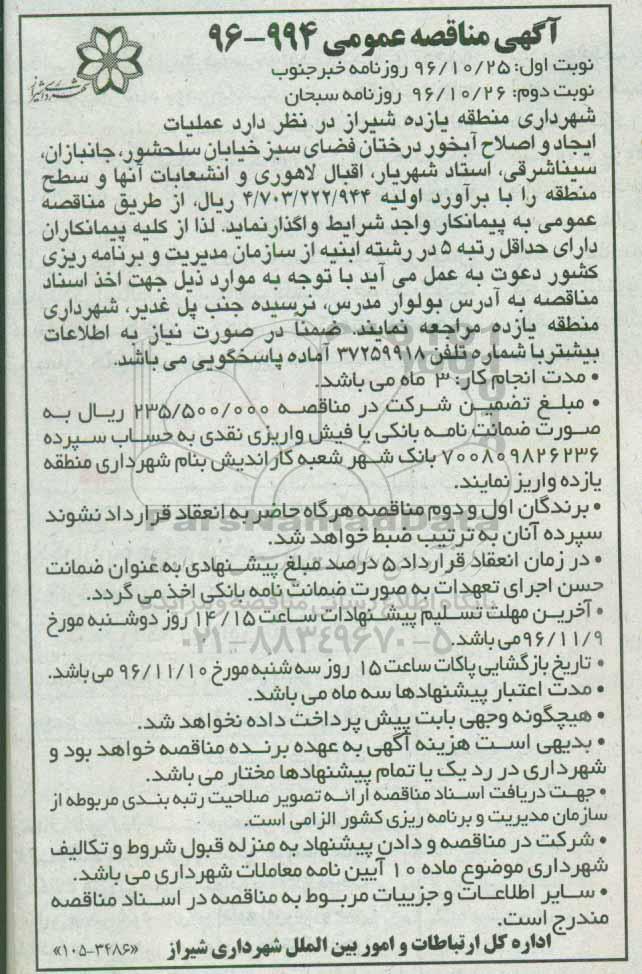 آگهی مناقصه عمومی ۹۹۴-۹۶
شهرداری شیراز
نوبت اول: ۹۶/۱۰/۲۵ روزنامه خبرجنوب
نوبت دوم: ۹۶/۱۰/۲۶ روزنامه سبحان
شهرداری منطقه یازده شیراز در نظر دارد عملیات
ایجاد و اصلاح آبخور درختان فضای سبز خیابان سلحشور، جانبازان،
سیناشرقی، استاد شهریار، اقبال لاهوری و انشعابات آنها و سطح
منطقه را با برآورد اولیه ۴/۷۰۳/۲۲۲/۹۴۴ ریال، از طریق مناقصه
عمومی به پیمانکار واجد شرایط واگذارنماید. لذا از کلیه پیمانکاران
دارای حداقل رتبه ۵ در رشته ابنیه از سازمان مدیریت و برنامه ریزی
کشور دعوت به عمل می آید با توجه به موارد ذیل جهت اخذ اسناد
مناقصه به آدرس بولوار مدرس، نرسیده جنب پل غدیر، شهرداری
منطقه یازده مراجعه نمایند. ضمناً در صورت نیاز به اطلاعات
بیشتر با شماره تلفن ۳۷۲۵۹۹۱۸ آماده پاسخگویی می باشد.
• مدت انجام کار: ۳ ماه می باشد.
• مبلغ تضمین شرکت در مناقصه ۲۳۵/۵۰۰/۰۰۰ ریال به
صورت ضمانت نامه بانکی یا فیش واریزی نقدی به حساب سپرده
۷۰۰۸۰۹۸۲۶۲۳۶ بانک شهر شعبه کاراندیش بنام شهرداری منطقه
یازده واریز نمایند.
• برندگان اول و دوم مناقصه هرگاه حاضر به انعقاد قرارداد نشوند
سپرده آنان به ترتیب ضبط خواهد شد.
• در زمان انعقاد قرارداد ۵ درصد مبلغ پیشنهادی به عنوان ضمانت
حسن اجرای تعهدات به صورت ضمانت نامه بانکی اخذ می گردد.
• آخرین مهلت تسلیم پیشنهادات ساعت ۱۴/۱۵ روز دوشنبه مورخ
۹۶/۱۱/۹ می باشد.
• تاریخ بازگشایی پاکات ساعت ۱۵ روز سه شنبه مورخ ۹۶/۱۱/۱۰ می باشد.
• مدت اعتبار پیشنهادها سه ماه می باشد.
• هیچگونه وجهی بابت پیش پرداخت داده نخواهد شد.
• بدیهی است هزینه آگهی به عهده برنده مناقصه خواهد بود و
شهرداری در رد یک یا تمام پیشنهادها مختار می باشد.
• جهت دریافت اسناد مناقصه ارائه تصویر صلاحیت رتبه بندی مربوطه از
سازمان مدیریت و برنامه ریزی کشور الزامی است.
• شرکت در مناقصه و دادن پیشنهاد به منزله قبول شروط و تکالیف
شهرداری موضوع ماده ۱۰ آیین نامه معاملات شهرداری می باشد.
• سایر اطلاعات و جزییات مربوط به مناقصه در اسناد مناقصه
مندرج است.
اداره کل ارتباطات و امور بین الملل شهرداری شیراز «۱۰۵-۳۴۸۶»
ParsNamadData
پایگاه اطلاع رسانی مناقصه و مزایده
۰۲۱-۸۸۳۴۹۶۷۰-۵